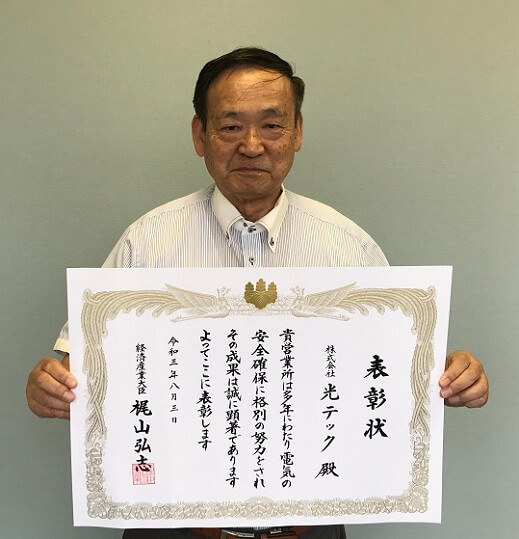 表彰状
株式会社 光テック 殿
貴営業所は多年にわたり電気の
安全確保に格別の努力をされ
その成果は誠に顕著であります
よってここに表彰します
令和三年八月三日
経済産業大臣 梶山弘志